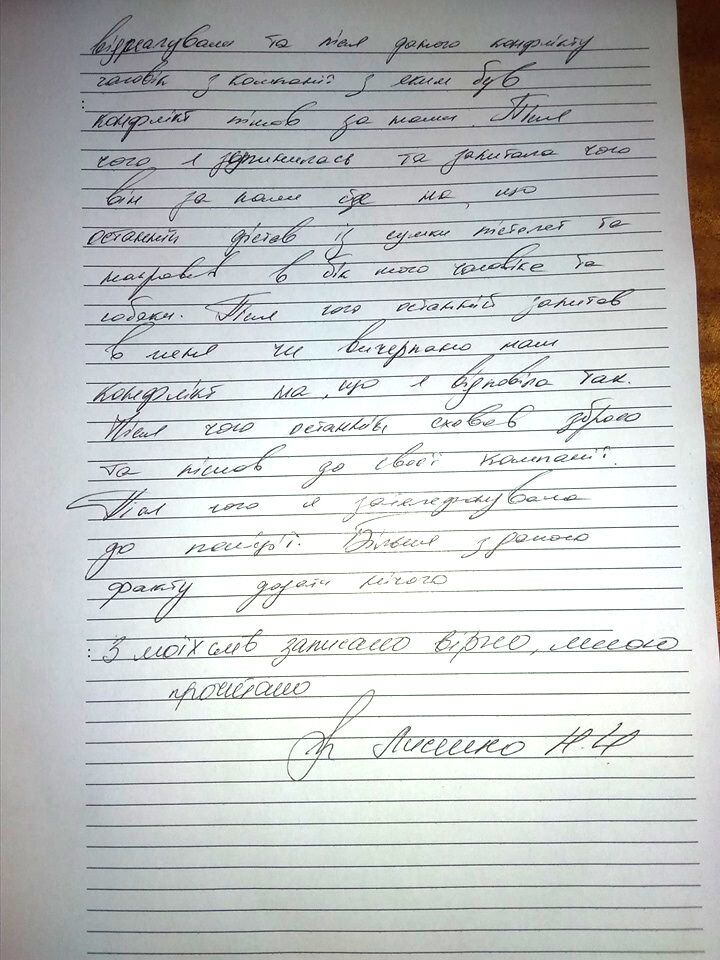 відреагували та після даного конфлікту
чоловік з компанії з яким був
конфлікт пішов за нами. Після
чого я зупинилась та запитала чого
він за нами іде на, що
останній дістав із сумки пістолет та
направив в бік мого чоловіка та
собаки. Після чого останній запитав
в мене чи вичерпано наш
конфлікт на, що я відповіла так.
Після чого останній сховав зброю
та пішов до своєї компанії.
Після чого я зателефонувала
до поліції. Більше з даного
факту додати нічого
З моїх слів записано вірно, мною
прочитано
Лисенко Н.